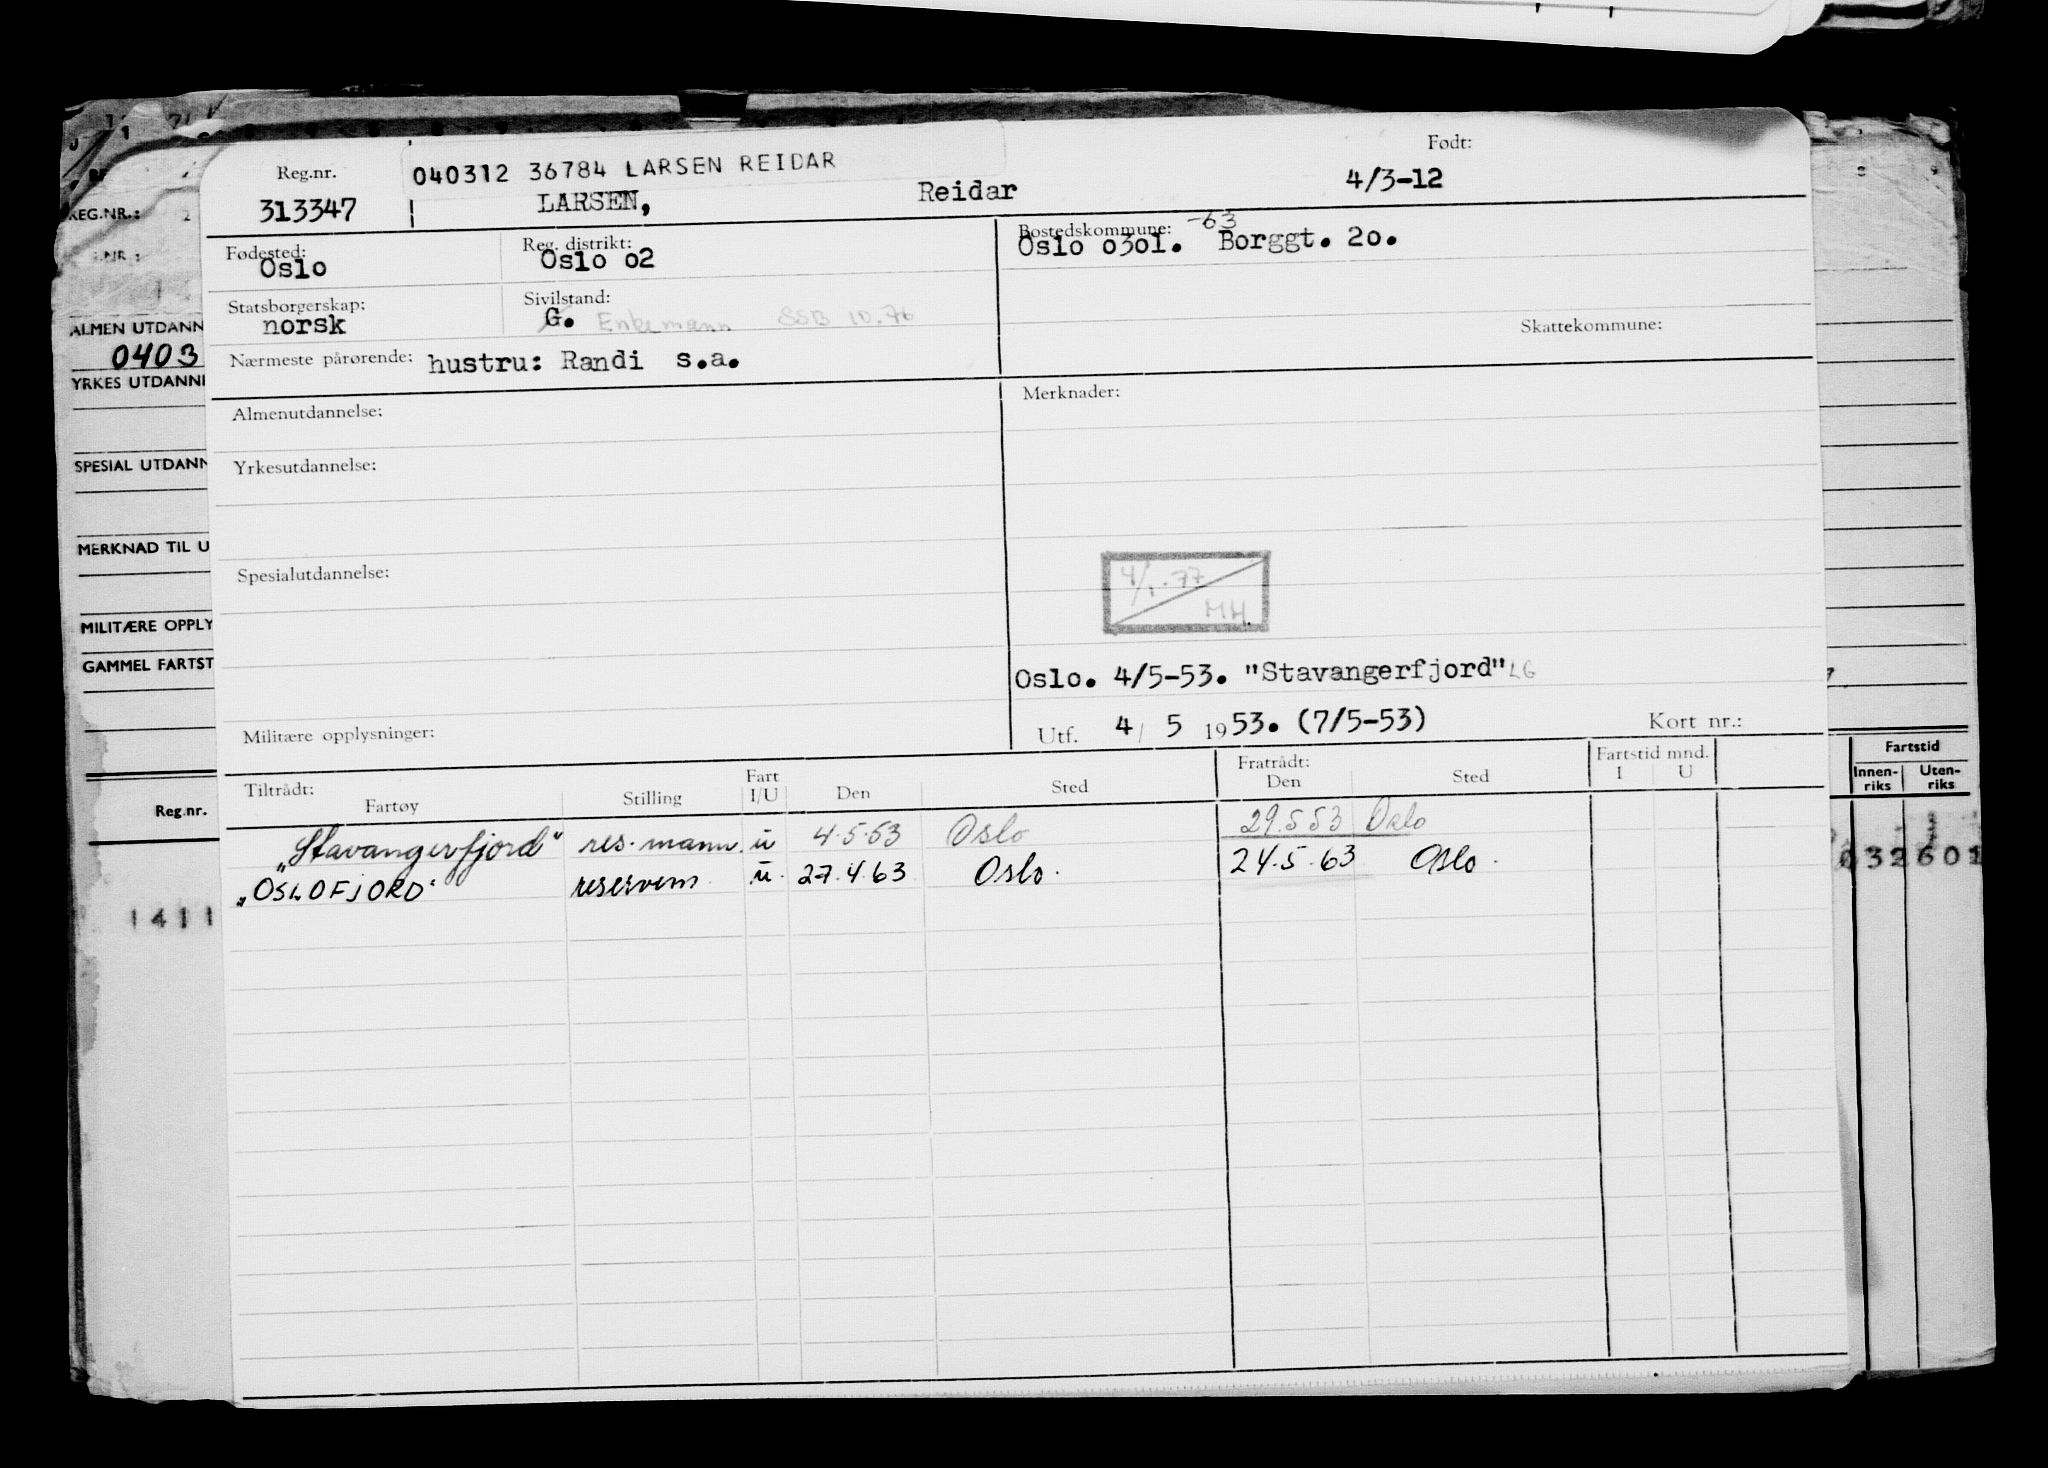 Reg.nr.
313347
040312 36784 LARSEN REIDAR
LARSEN, Reidar
Født:
4/3-12
Fødested:
Oslo
Reg. distrikt:
Oslo o2
Bostedskommune: -63
Oslo o3o1. Borggt. 2o.
Statsborgerskap:
norsk
Sivilstand:
G. Enkemann SSB 10.76
Skattekommune:
Nærmeste pårørende: hustru: Randi s.a.
Almenutdannelse:
Merknader:
Yrkesutdannelse:
Spesialutdannelse:
4/1.-77
MH.
Oslo. 4/5-53. "Stavangerfjord" LG
Militære opplysninger:
Utf. 4/ 5 1953. (7/5-53) Kort nr.:
Tiltrådt:
Fartøy Stilling Fart I/U Den Sted
Fratrådt:
Den Sted
Fartstid mnd.
I U
„Stavangerfjord" res. mann u 4.5.53 Oslo 29.5.53 Oslo
„OSLOFJORD" reservem u. 27.4.63 Oslo. 24.5.63 Oslo.
REG.NR.: 2
ALMEN UTDANN
0403
YRKES UTDANN
SPESIAL UTDANN
MERKNAD TIL U
MILITÆRE OPPLY
GAMMEL FARTST
Reg.nr.
1411
Fartstid
Innen-riks Uten-riks
632601